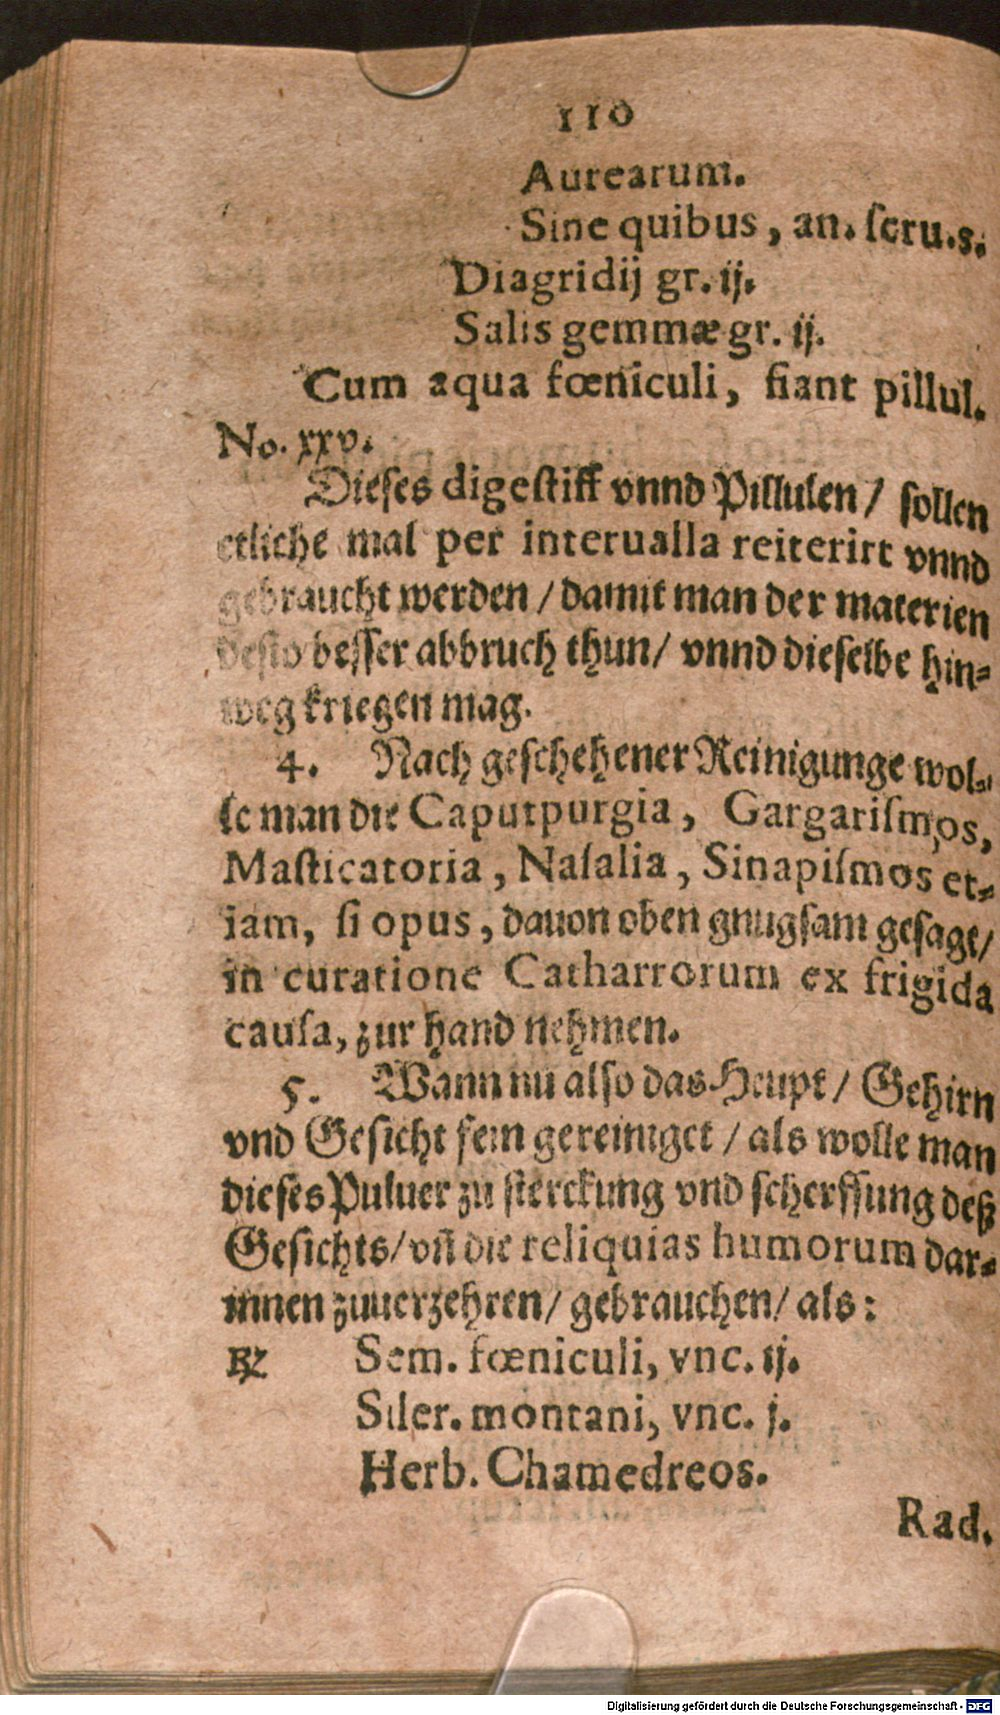 110
Aurearum.
Sine quibus, an. ſcru.s.
Diagridij gr. ij.
Salis gemmæ gr. ij.
Cum aqua fœniculi, fiant pillul.
No. xxv.
Dieſes digeſtiff vnnd Pillulen / ſollen
etliche mal per interualla reiterirt vnnd
gebraucht werden / damit man der materien
deſto beſſer abbruch thun / vnnd dieſelbe hin-
weg kriegen mag.
4. Nach geſchehener Reinigunge wol-
le man die Caputpurgia, Gargariſmos,
Maſticatoria, Naſalia, Sinapiſmos et-
iam, ſi opus, dauon oben gnugſam geſagt /
in curatione Catharrorum ex frigida
cauſa, zur hand nehmen.
5. Wann nu alſo das Heupt / Gehirn
vnd Geſicht fein gereiniget / als wolle man
dieſes Puluer zu ſterckung vnd ſcherffung deß
Geſichts / vñ die reliquias humorum dar-
innen zuuerzehren / gebrauchen / als:
℞ Sem. fœniculi, vnc. ij.
Siler. montani, vnc. j.
Herb. Chamedreos.
Rad.
Digitalisierung gefördert durch die Deutsche Forschungsgemeinschaft - DFG